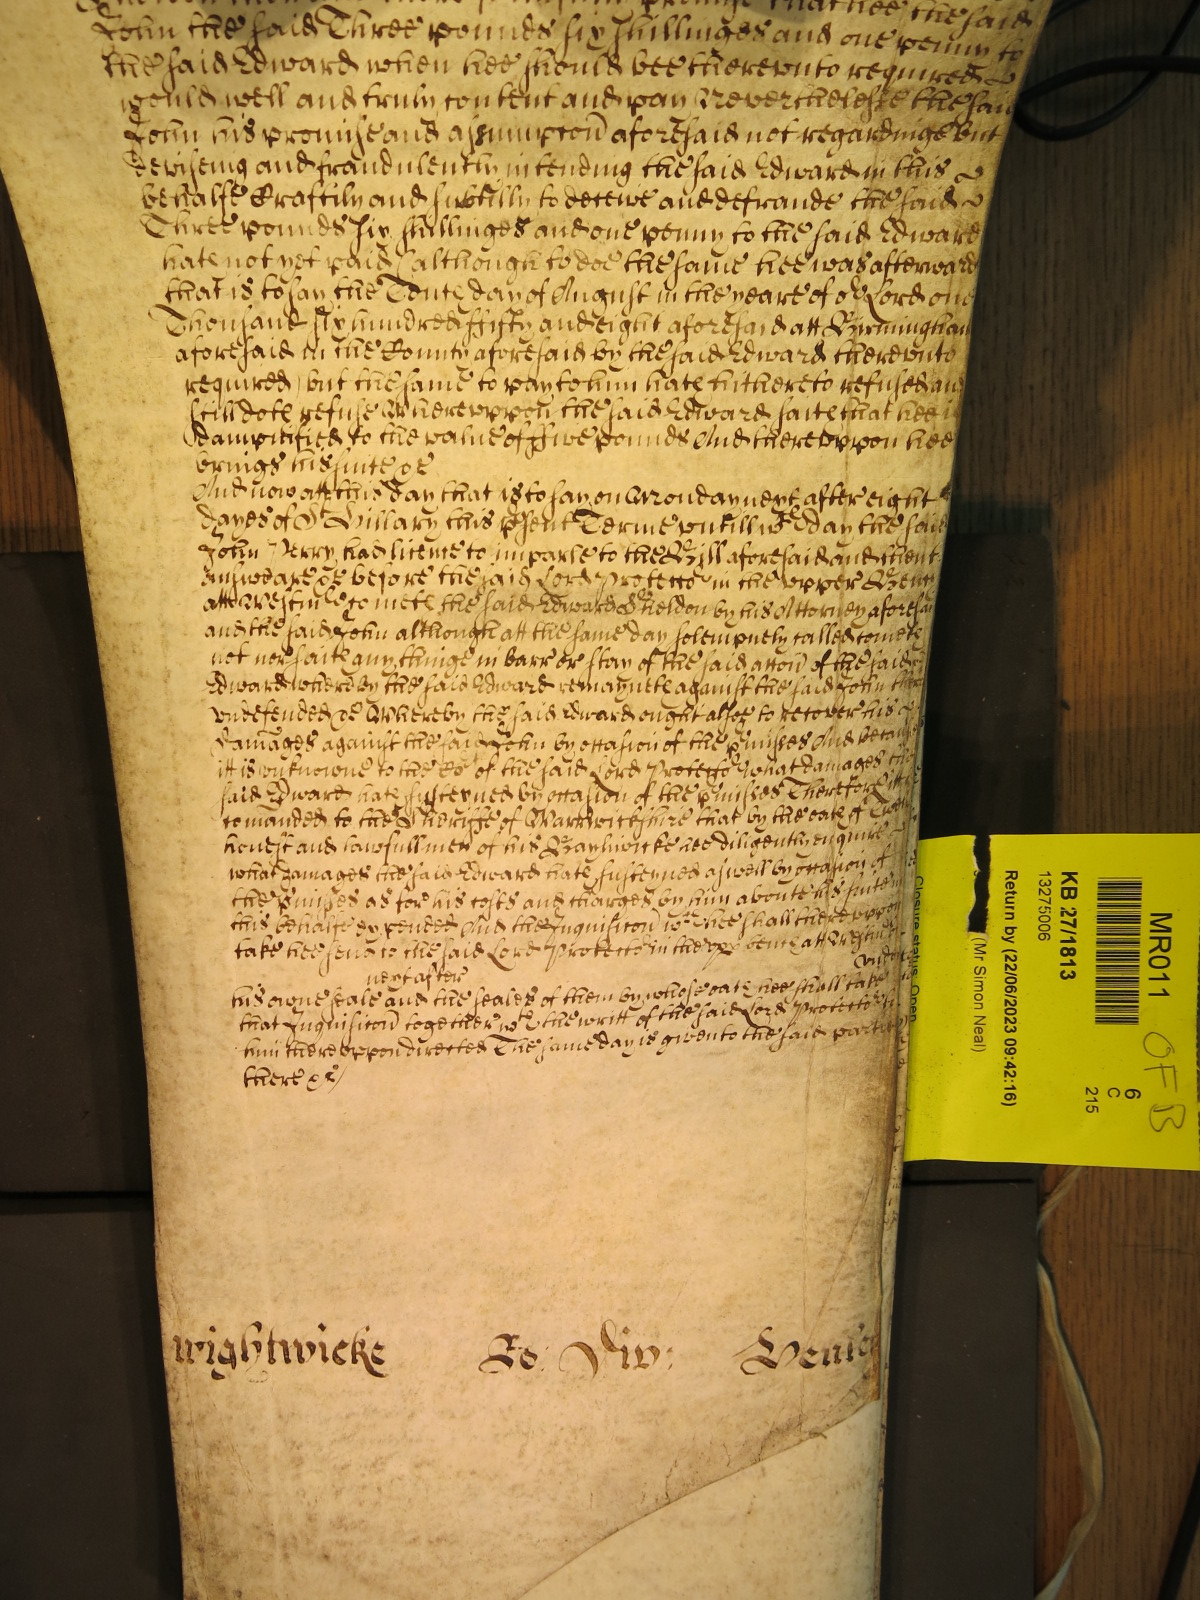 John the said Three pounds six shillinges and one penny to
the said Edward when hee should bee therevnto required
would well and truly content and pay Neverthelesse the said
John his promise and assumpcon aforesaid not regardinge but
deviseing and fraudulently intending the said Edward in this
behalfe Craftily and subtilly to deceive and defraude the said
Three pounds six shillinges and one penny to the said Edward
hath not yet paid (although to doe the same hee was afterward
that is to say the Tenth day of August in the yeare of or Lord one
Thousand six hundred ffifty and eight aforesaid att Byrmingham
aforesaid in the County aforesaid by the said Edward therevnto
required) but the same to pay to him hath hithereto refused and
still doth refuse Wherevppon the said Edward saith that hee is
dampnified to the value of ffive pounds And therevppon hee
brings his suite &c
And now att this day that is to say on Monday next after eight
dayes of St Hillary this psent Terme vntill wch day the said
John Perry had licence to imparle to the Bill aforesaid and then to
answeare &c before the said Lord Protector in the vpper Bench
att Westmr cometh the said Edward Sheldon by his Attorney aforesaid
and the said John although att the same day solempnely called cometh
not nor saith any thinge in barr or stay of the said accon of the said
Edward whereby the said Edward remayneth against the said John
vndefended &c Whereby the said Edward ought to recover his
damages against the said John by occasion of the pmisses And because
itt is vnknowne to the Cort of the said Lord Protector what damages the
said Edward hath susteyned by occasion of the pmisses Therefore itt is
comanded to the Sheriffe of Warrwickshire that by the oath of Twelve
honest and lawfull men of his Baylywicke hee diligently enquire
what damages the said Edward hath susteyned aswell by occasion of
the pmisses as for his costs and charges by him about his suite in
this behalfe expended And the Inquisicon wch hee shall therevppon
take hee send to the said Lord Protector in the vpp bench att Westmr
next after vnder
his owne seale and the seales of them by whose oath hee shall take
that Inquisicon together wth the writt of the said Lord Protector to
him therevppon directed The same day is given to the said partie
there &c
wightwicke Co: Div:
MR011
OFB
KB 27/1813
13275006
6
C
215
Return by (22/06/2023 09:42:16)
(Mr Simon Neal)
Closure status: Open